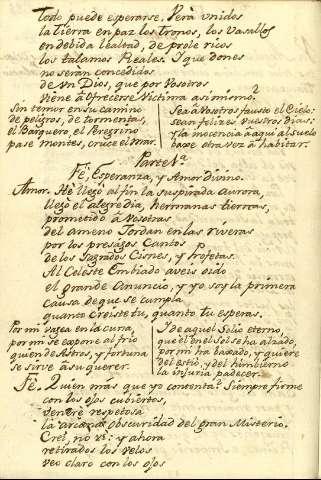 Todo puede esperarse. Verà unidos
la tierra en paz los tronos, los Vasallos
en debida lealtad, de prole ricos
los talamos Reales. I que dones
no seràn concedidos
de vn Dios, que por Vosotros
viene à ofrecerse Victima asi mismo?
Sin temor en su camino
de peligros, de tormentas,
el Barquero, el Peregrino
pase montes, cruce el mar.
Sea à Vuestros fausto el Cielo:
sean felizes vuestros dias:
y la inocencia àqui al suelo
baxe otra vez à habitar.
Parte
Fè, Esperanza, y Amor divino.
Amor. Hà llegò al fin la suspirada aurora,
llegò el alegre dia, hermanas tiernas,
prometido à Vosotras
del ameno Jordan en las riveras
por los presagos Cantos
de los Sagrados Cisnes, y Profetas.
Al Celeste Embiado aveis oido
el grande Anuncio, y yo soy la primera
causa de que se cumpla
quanto creiste tu, quanto tu esperas.
Por mi vagea en la cuna,
por mi se expone al frio
quien de Astros, y fortuna
se sirve à su querer.
I de aquel Solio eterno,
que el en el Sol se ha alzado,
por mi ha baxado, y quiere
del estio, y del himbierno
la injuria padecer.
Fè. Quien mas que yo contenta? Siempre firme
con los ojos cubiertos,
venerè respetosa
la arcana obscuridad del gran Misterio.
Creì, no vì: y ahora
retirados los velos
veo claro con los ojos